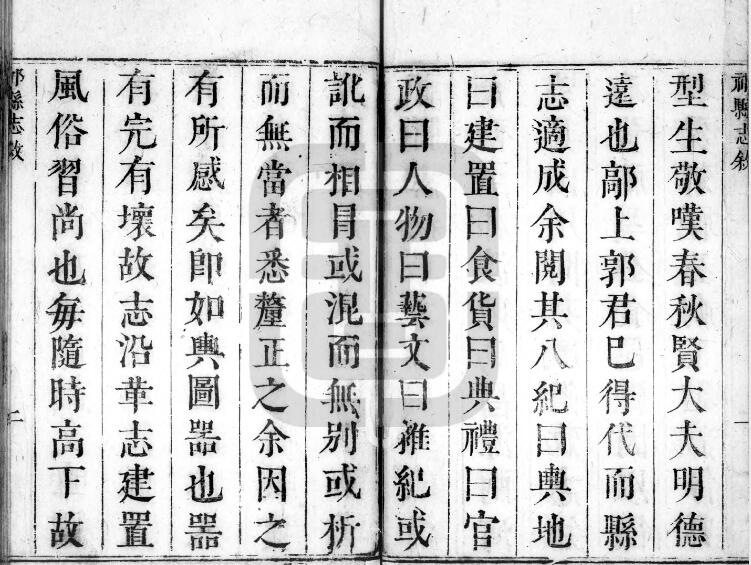 型生敬嘆春秋賢大夫明德
遠也鄗上郭君已得代而縣
志適成余閱其八紀曰輿地
曰建置曰食貨曰典禮曰官
政曰人物曰藝文曰雜紀或
訛而相冒或混而無別或析
而無當者悉釐正之余因之
有所感矣即如輿圖器也器
有完有壞故志沿革志建置
風俗習尚也每隨時高下故
祁縣志敘
一
縣志敘
二